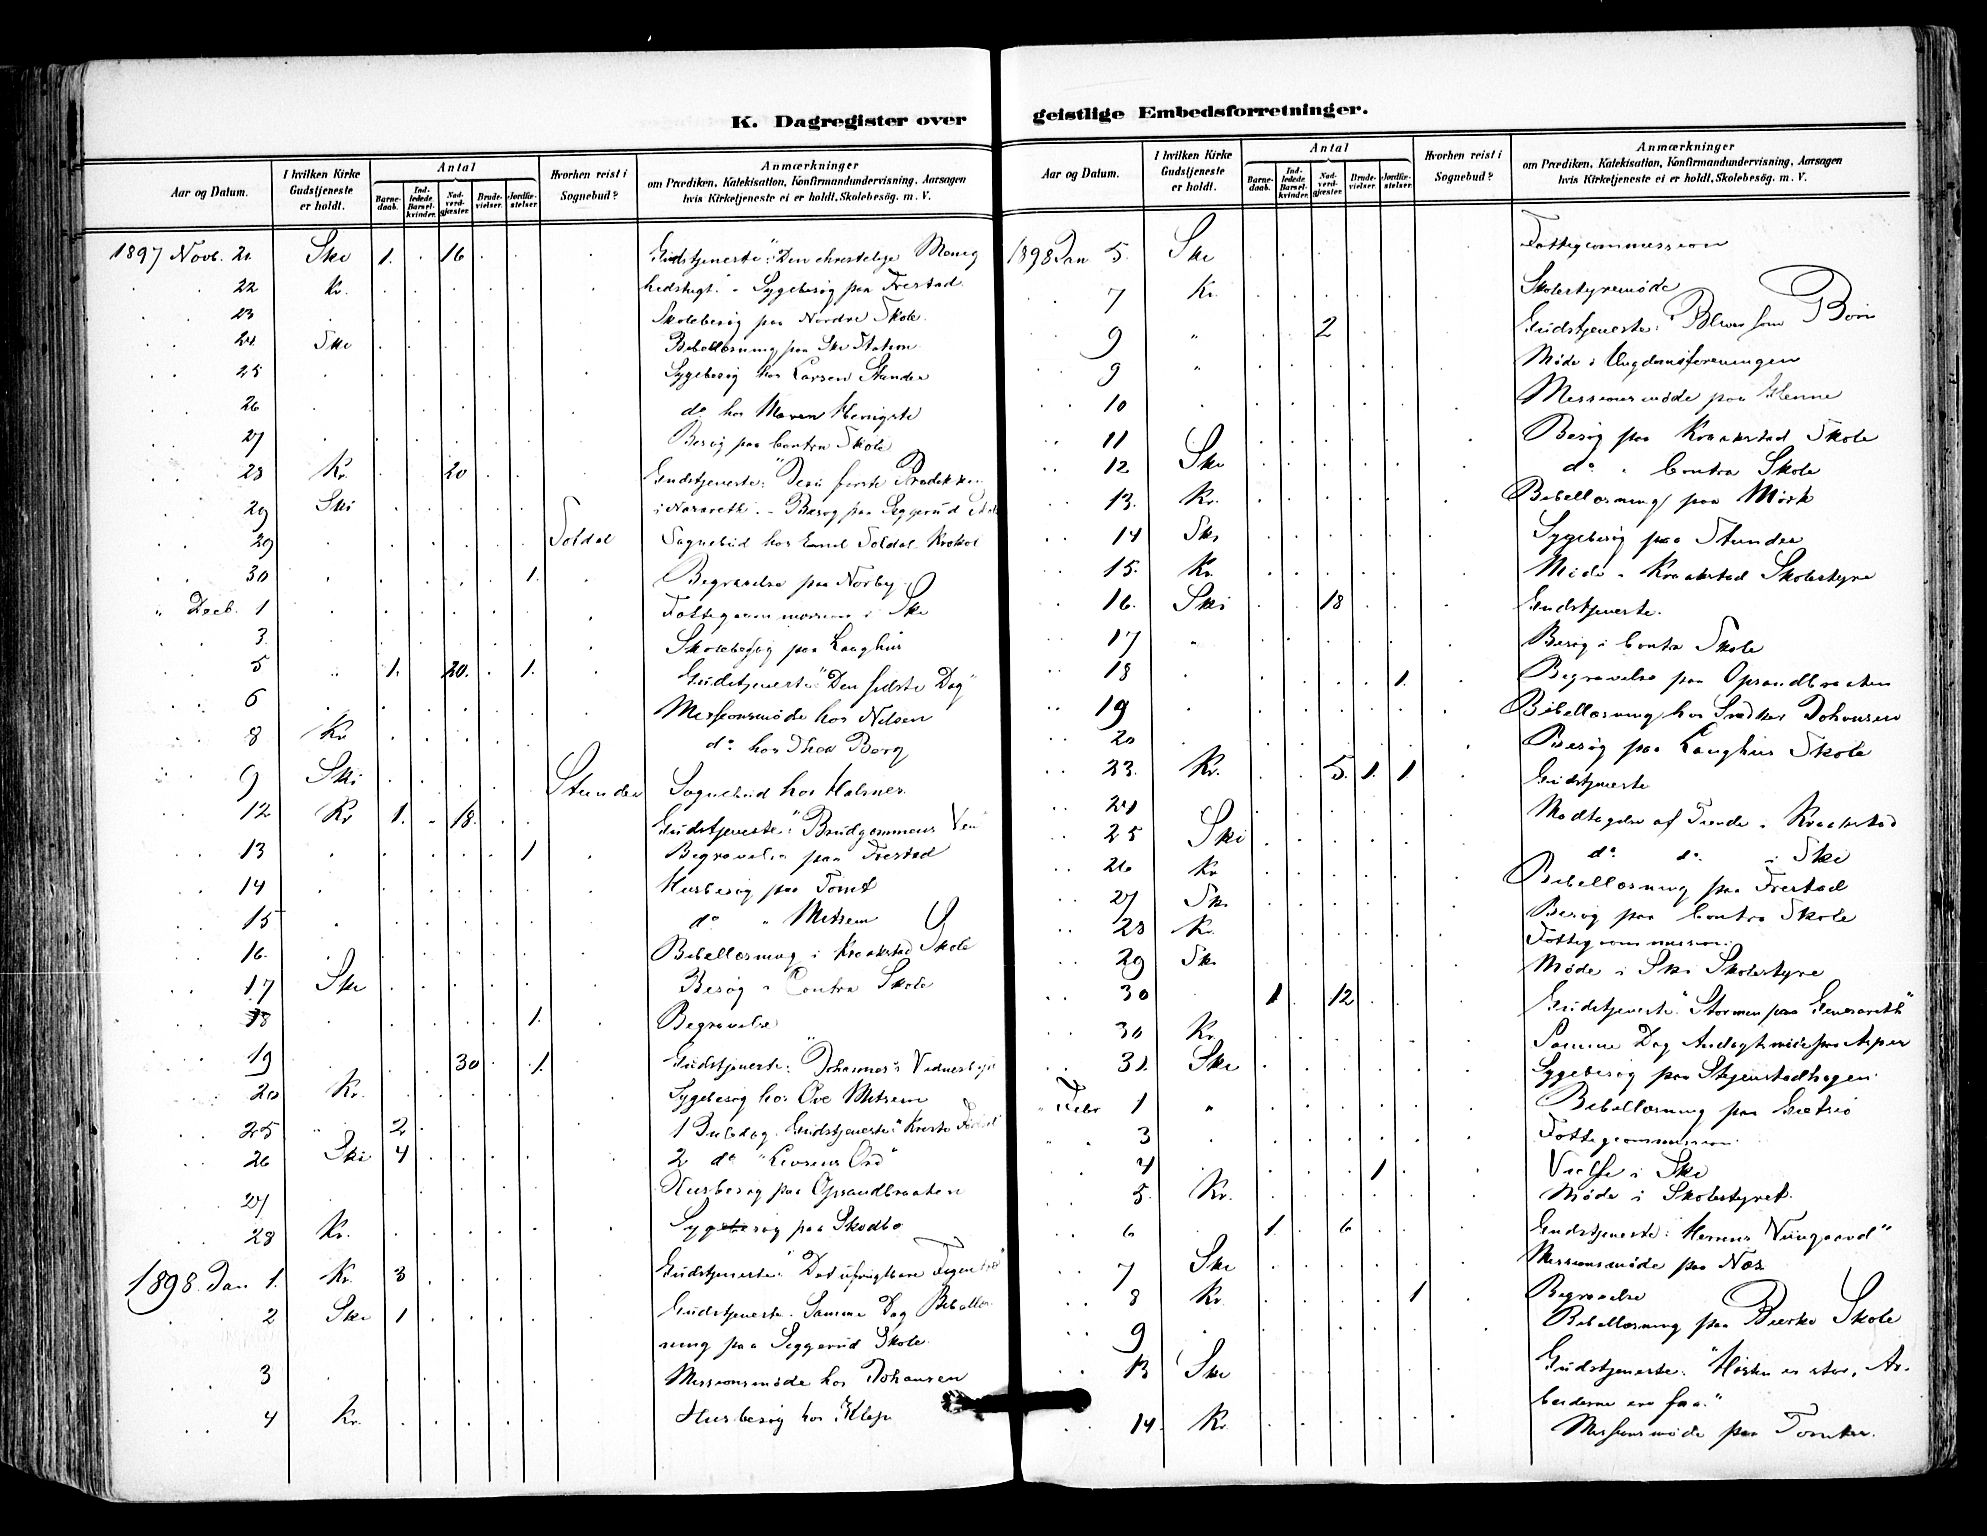 K. Dagregister over
Aar og Datum.
I hvilken Kirke Gudstjeneste er holdt.
Antal
Barne-daab.
Ind-ledede Barsel-kvinder.
Nad-verd-gjæster.
Brude-vielser.
Jordfæ-stelser.
Hvorhen reist i Sognebud?
Anmærkninger
om Prædiken, Katekisation, Konfirmandundervisning, Aarsagen
hvis Kirketjeneste ei er holdt, Skolebesøg. m. V.
1897 Novb. 21 Ski 1. . 16 . . . Gudstjeneste: "Den christelige Menig
. . 22 Kr. hedstugt." - Sygebesøg paa Frestad.
. . 23 Skolebesøg paa Nordre Skole.
. . 24. Ski Bibellæsning paa Ski Station
. . 25 Sygebesøg hos Larsen Stunder
26 do hos Maren
. . 27 Besøg paa Contra Skole
. . 28 Kr. 20 Gudstjeneste: "Jesu første Prædiken
. . 29 Ski i Nazareth". - Besøg paa Seggerud
. . 29 Soldal Sognebud hos Emil Soldal Krokol
. . 30 1. Begravelse paa Norby.
" Decb. 1 Fattigcommission i Ski
. . 3. Skolebesøg paa Langhus
. . 5 " 1. 20. 1. Gudstjeneste: "Den sidste Dag"
. . 6 Missionsmøde hos Nilsen
. . 8 Kr do hos Thea Borg
. . 9 Ski Stunder Sognebud hos Halsnes.
. . 12 Kr 1. 18. Gudstjeneste: "Brudgommens Ven"
. . 13 1 Begravelse paa Frestad
. . 14 Husbesøg paa Tomt
. . 15 do " Mitsem
. . 16. Bibellæsning i Kraakstad Skole
. . 17 Ski Besøg i Contra Skole
. . 18 1. Begravelse
. . 19 30 1. Gudstjeneste: "Johannes's Vidnesbyrd
. . 20 Kr. Sygebesøg hos Ove Mitsem
. . 25 " 2 1 Juledag. Gudstjeneste: "Kristi
. . 26 Ski 4 2 do "Livsens Ord"
. . 27 Husbesøg paa Opsandbraaten
. . 28 Kr. Sygebesøg paa Skodbo
1898. Jan 1. Kr. 3 Gudstjeneste: "Det ufrugtbare Figentræ"
. . 2 Ski 1 Gudstjeneste. Samme Dag Bibellæs-
ning paa Seggerud Skole.
. . 3 Missionsmøde hos Johansen
. . 4 Kr. Husbesøg hos Klep
geistlige Embedsforretninger.
Aar og Datum.
I hvilken Kirke Gudstjeneste er holdt.
Antal
Barne-daab.
Ind-ledede Barsel-kvinder.
Nad-verd-gjæster.
Brude-vielser.
Jordfæ-stelser.
Hvorhen reist i Sognebud?
Anmærkninger
om Prædiken, Katekisation, Konfirmandundervisning, Aarsagen
hvis Kirketjeneste ei er holdt, Skolebesøg. m. V.
1898 Jan 5. Ski Fattigcommission
. . 7 Kr. Skolestyremøde
. . 9 " 2 Gudstjeneste: "Bliver som Børn
. . 9 " Møde i Ungdomsforeningen
. . 10 Missionsmøde paa Glenne
. . 11 Besøg paa Kraakstad Skole
. . 12. Ski do " Contra Skole
. . 13. Kr. Bibellæsning paa Mørk
. . 14 Ski Sygebesøg paa Stunder
. . 15. Kr. Møde i Kraakstad Skolestyre
. . 16. Ski 18 Gudstjeneste.
. . 17 " Besøg i Contra Skole
. . 18 1. Begravelse paa Opsandbraaten
. . 19 Bibellæsning hos Snedker Johansen
. . 20 Besøg paa Langhus Skole
. . 23. Kr. 5. 1. 1 Gudstjeneste
. . 24 Modtagelse af Tiende i Kraakstad
. . 25 Ski do. do. i Ski
. . 26 Kr Bibellæsning paa Frestad
. . 27 Ski Besøg paa Contra Skole
. . 28 Kr. Fattigcommission.
. . 29 Ski Møde i Ski Skolestyre
. . 30 1 12 Gudstjeneste: "Stormen paa Genesareth"
. . 30 Kr. Samme Dag Andagtsmøde paa Asper
. . 31. Ski Sygebesøg paa Stjenstadhagen.
" Febr 1 " Bibellæsning paa
. . 3 Fattigcommission.
. . 4 1 Vielse i Ski
. . 5. Kr. Møde i Skolestyret.
. . 6 1. 6 Gudstjeneste: Herrens Viingaard"
. . 7 Ski Missionsmøde paa Næs
. . 8 Kr. 1 Begravelse
. . 9 Bibellæsning paa Bierke Skole
. . 13 Ski Gudstjeneste: "Høsten er stor, Ar-
beiderne ere faa."
. . 14. Kr. Missionsmøde paa Tomter.